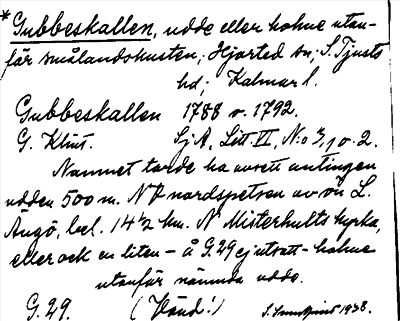 * Gubbeskallen, udde eller holme utan-
för smålandskusten; Hjorted sn; S. Tjusts
hd; Kalmar l.
Gubbeskallen 1788 o. 1792.
G. Klint. Sj A, Litt. VI, N:o 3, 1 o. 2.
Namnet torde ha avsett antingen
udden 500 m. N? nordspetsen av ön L.
Ängö, bel. 14½ km. N Misterhults kyrka,
eller ock en liten – å G. 29 ej utsatt – holme
utanför nämnda udde.
G. 29. (Vänd!) 1938.